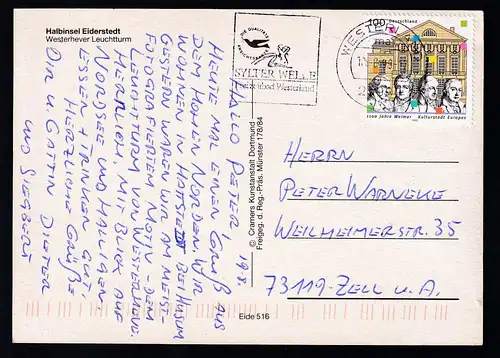 Halbinsel Eiderstedt
Westerhever Leuchtturm
SYLTER WELLE
100 Deutschland
1100 Jahre Weimar Kulturstadt Europas
HALLO PETER 19.8.
HEUTE MAL EINEN GRUß AUS
DEM HOHEN NORDEN. WIR
WOHNEN IN HATTSTEDT BEI HUSUM
GESTERN WAREN WIR AM MEIST-
FOTOGRAFIERTEM MOTIV - DEM
LEUCHTTURM VON WESTERHEVER.
HERRLICH, MIT BLICK AUF
NORDSEE UND HALLIGEN
ESSEN + TRINKEN GUT.
HERZLICHE GRÜßE
DIR U. GATTIN DIETER
UND SIEGBERT
© Cramers Kunstanstalt Dortmund
Freigeg. d. Reg.-Präs. Münster 178/84
HERRN
PETER WARNEKE
WEILHEIMERSTR. 35
73119-ZELL U.A.
Eide 516